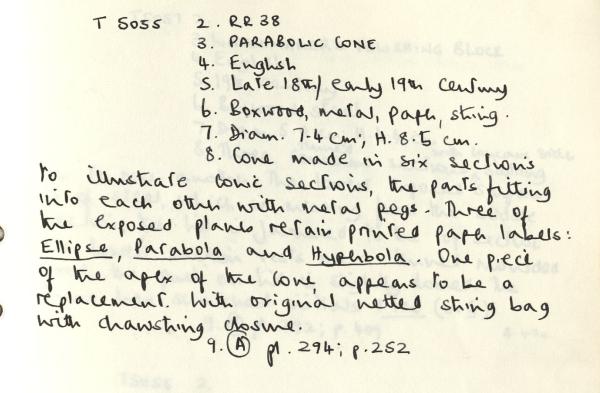 T 5055 2. RR 38
3. PARABOLIC CONE
4. English
5. Late 18th/ early 19th century
6. Boxwood, metal, paper, string.
7. Diam. 7.4 cm; H. 8.5 cm.
8. Cone made in six sections
to illustrate conic sections, the parts fitting
into each other with metal pegs. Three of
the exposed planes retain printed paper labels:
Ellipse, Parabola and Hyperbola. One piece
of the apex of the cone appears to be a
replacement. With original netted string bag
with drawstring closure.
9. A pl. 294; p. 252